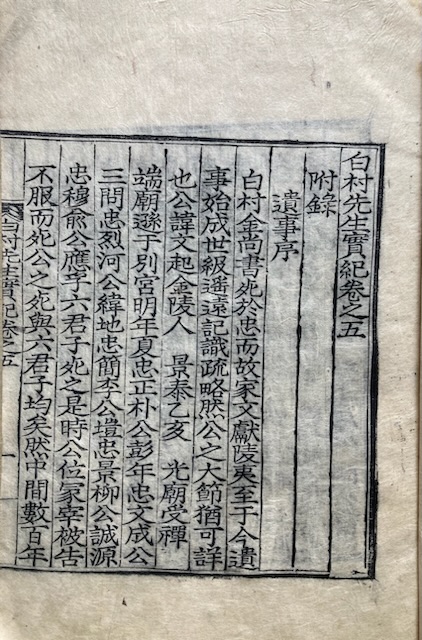 白村先生實紀卷之五
附錄
遺事序
白村金尙書死於忠而故家文獻陵夷至于今遺
事始成世級遥遠記識疏略然公之大節猶可詳
也公諱文起金陵人 景泰乙亥 光廟受禪
端廟遜于別宮明年夏忠正朴公彭年忠文成公
三問忠烈河公緯地忠簡李公塏忠景柳公誠源
忠穆兪公應孚六君子死之是時公位冢宰被告
不服而死公之死與六君子均矣然中間數百年
白村先生實紀卷之五 一